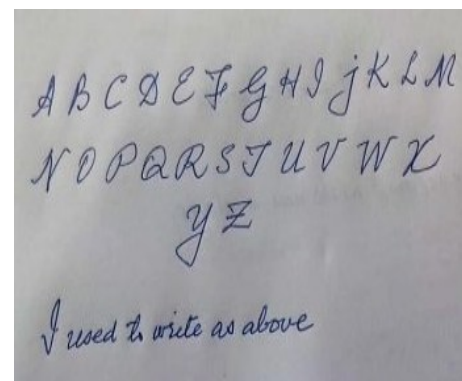 A B C D E F G H I j K L M
N O P Q R S T U V W X
Y Z
I used to write as above